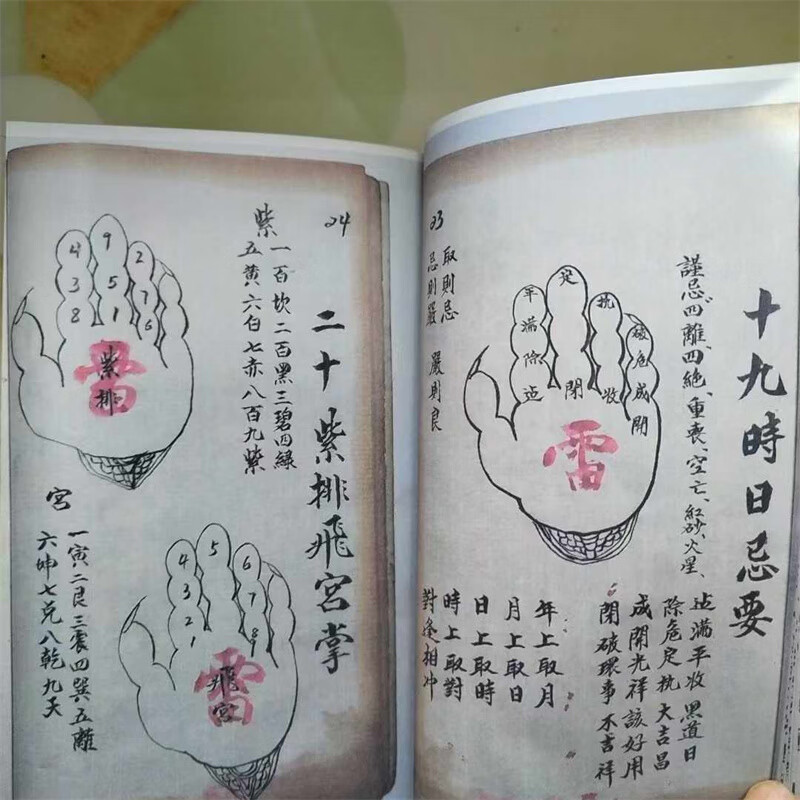 十九時日忌要
謹忌、四離四絕、重喪、空亡、紅砂、火星、
迠滿平收 黑道日
除危定執 大吉昌
成開光祥該好用
閉破環事不吉祥
年上取月
月上取日
日上取時
時上取對
對逢相冲
平滿除迠
定
閉
執
收
破危成開
雷
23
取則忌
忌則嚴 嚴則良
24
二十紫排飛宮掌
紫
一百坎二百黑三碧四綠
五黃六白七赤八百九紫
4 3 8
9 5 1
2 7 6
雷
紫排
宮
一寅二良三震四巽五離
六坤七兑八乾九天
4 3 2 1
5
6 7 8 9
雷
飛宮